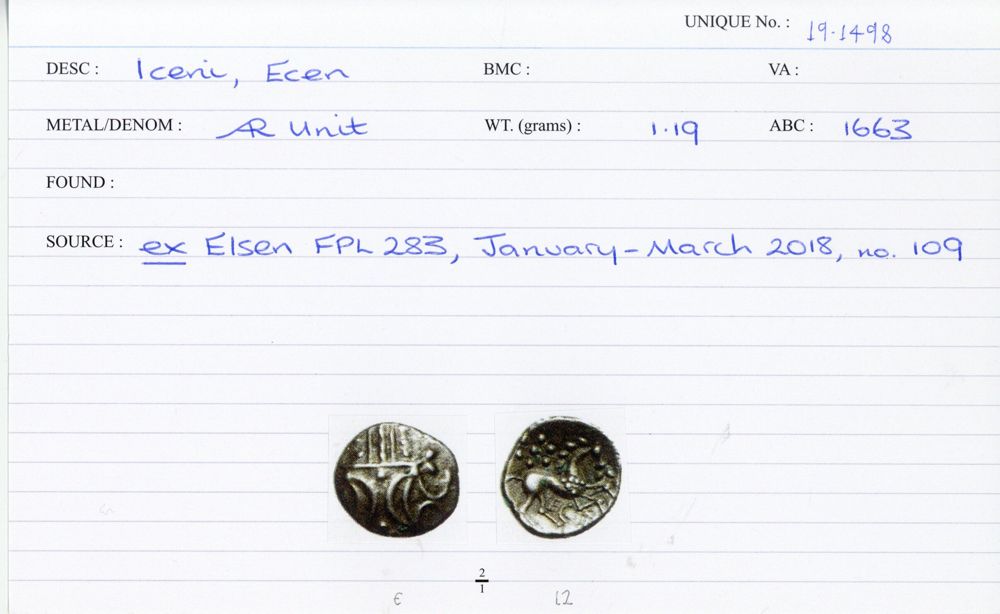 UNIQUE No. : 19.1498
DESC : Iceni, Ecen BMC : VA :
METAL/DENOM : AR Unit WT. (grams) : 1.19 ABC : 1663
FOUND :
SOURCE : ex Elsen FPL 283, January - March 2018, no. 109
2
1
€ 12